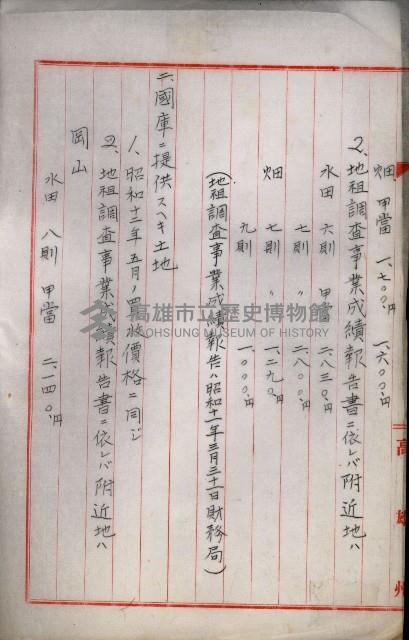 畑 甲當 一、七〇〇円 一、六〇〇円
2、地租調査事業成績報告書ニ依レバ附近地ハ
水田 六則 甲當 二、八三〇円
七則 〃 二、八〇〇円
畑 七則 〃 一、二九〇円
九則 一、〇〇〇円
(地租調査事業成績報告ハ昭和十一年三月三十一日財務局)
二、國庫ニ提供スヘキ土地
1、昭和十二年五月ノ四收價格ニ同ジ
2、地租調査事業成績報告書ニ依レバ附近地ハ
岡山
水田 八則 甲當 二、一四〇円
高雄州
高雄市立歷史博物館
KAOHSIUNG MUSEUM OF HISTORY